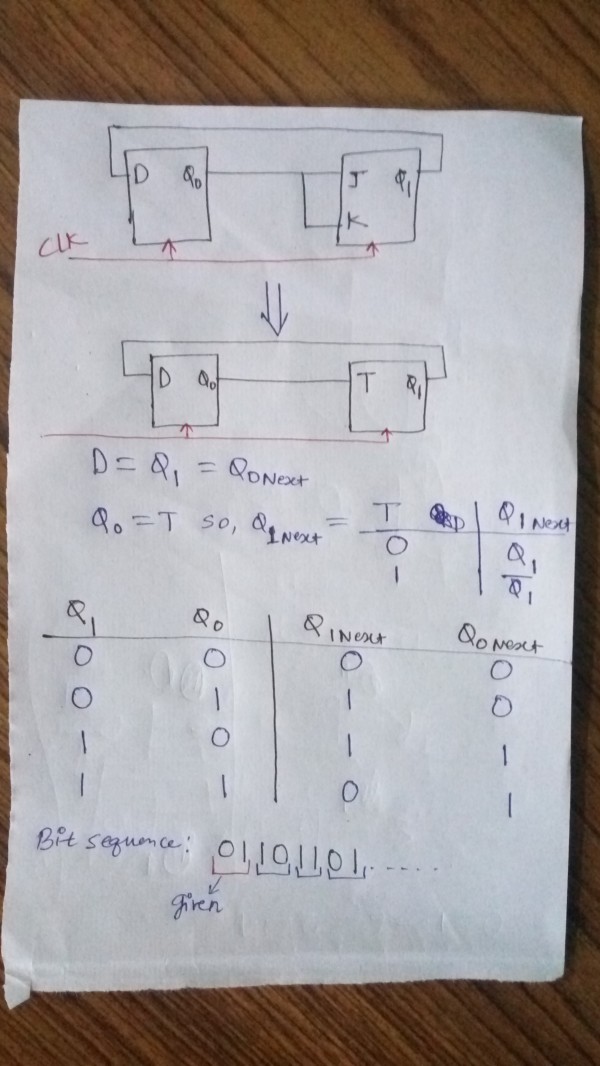 D Q₀ J Q₁
K
CLK
⇓
D Q₀ T Q₁
D = Q₁ = Q₀Next
Q₀ = T so, Q₁Next = T | Q₁Next
0 | Q₁
1 | Q̅₁
Q₁ Q₀ | Q₁Next Q₀Next
0 0 | 0 0
0 1 | 1 0
1 0 | 1 1
1 1 | 0 1
Bit sequence: 01101101......
given